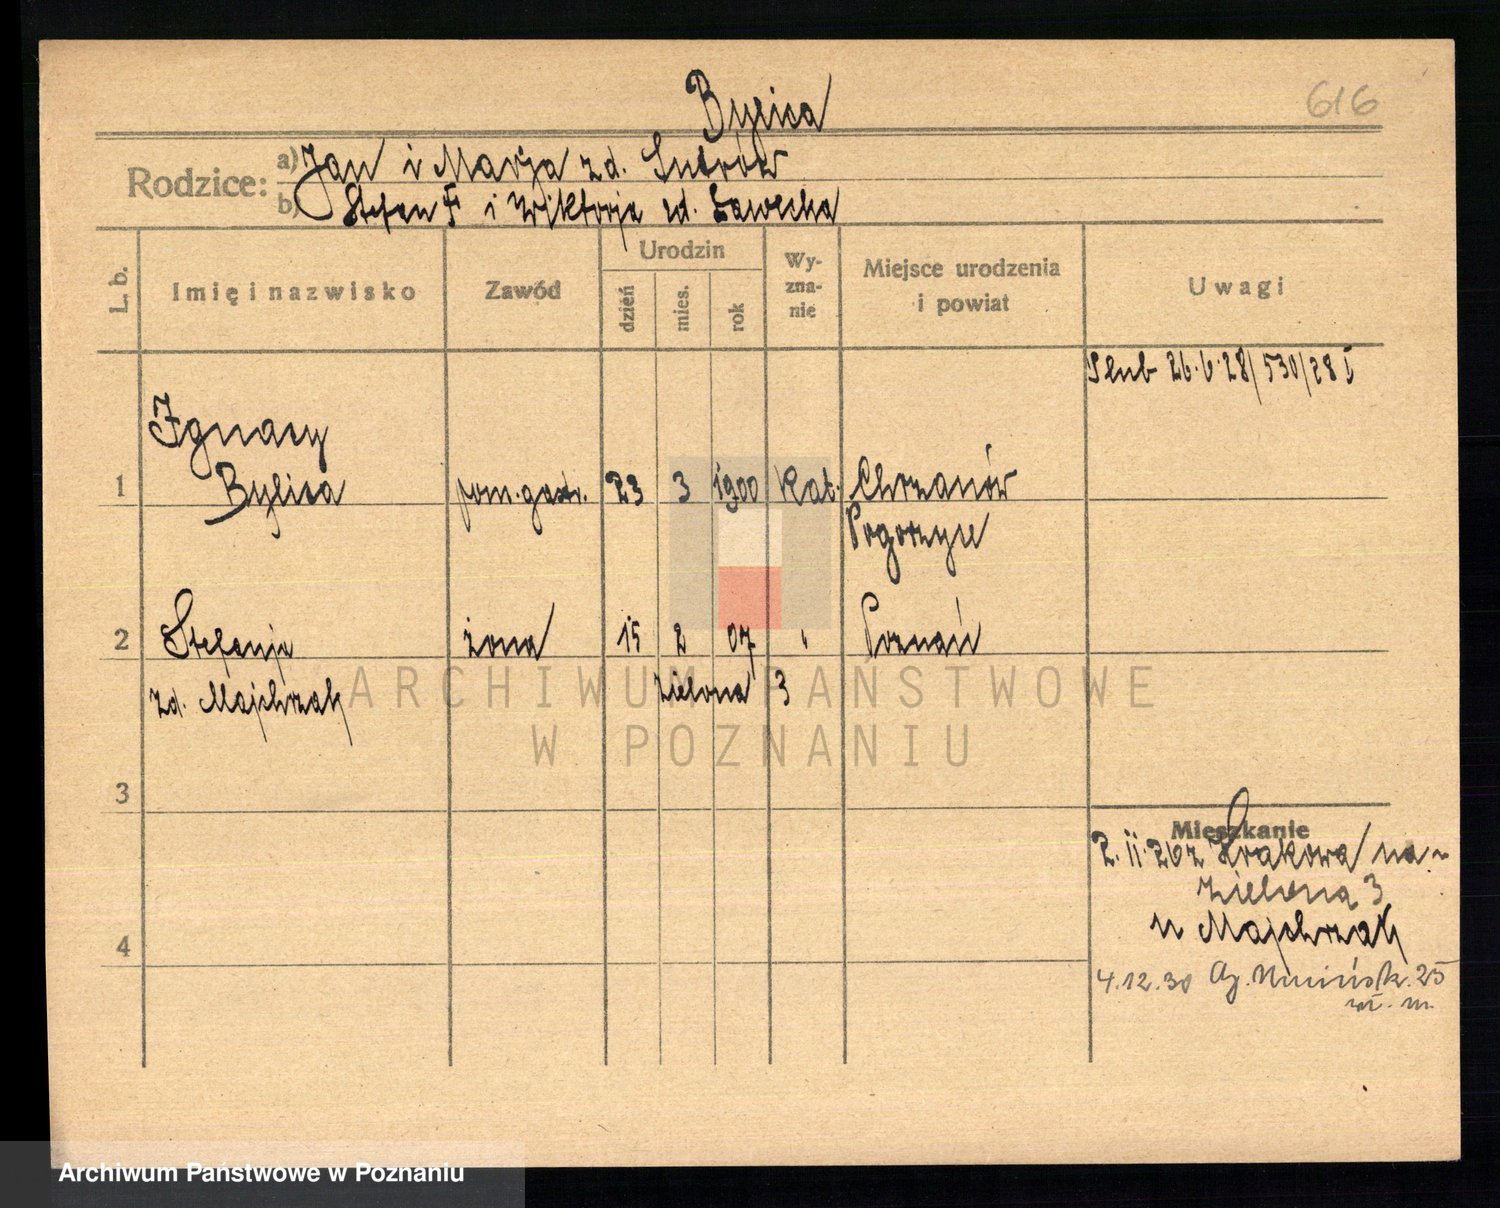 616
Bylica
Rodzice:
a) Jan i Marja zd.
b) Stefan F i Wiktorja zd. Ławecka
L. b.
Imię i nazwisko
Zawód
Urodzin
dzień
mies.
rok
Wy-
zna-
nie
Miejsce urodzenia
i powiat
Uwagi
Ślub 26.6.28/530/28 I
Ignacy
1 Bylica pom. gastr. 23 3 1900 Kat. Chrzanów
Pogorzyce
2 Stefanja żona 15 2 07 " Poznań
zd. Majchrzak Zielona 3
ARCHIWUM PAŃSTWOWE
W POZNANIU
3
Mieszkanie
2.II.26 z Krakowa na
Zieloną 3
u Majchrzak
4
4.12.30 25
wł. m.
Archiwum Państwowe w Poznaniu